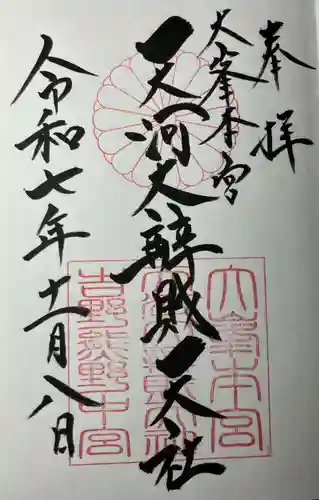 奉拝
大峯本宮
天河大辨財天社
令和七年十一月八日
大峯本宮
天河大辨財天社
吉野熊野中宮